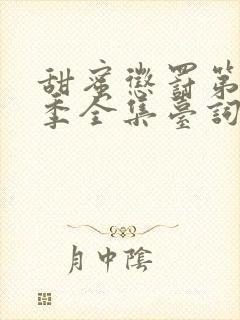 甜蜜懲罰第
季全集臺詞
月中陰